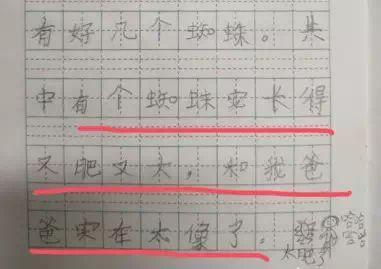 有好几个蜘蛛。其
中有个蜘蛛它长得
又肥又大，和我爸
爸实在太像了。
太肥了
哈哈
哈哈